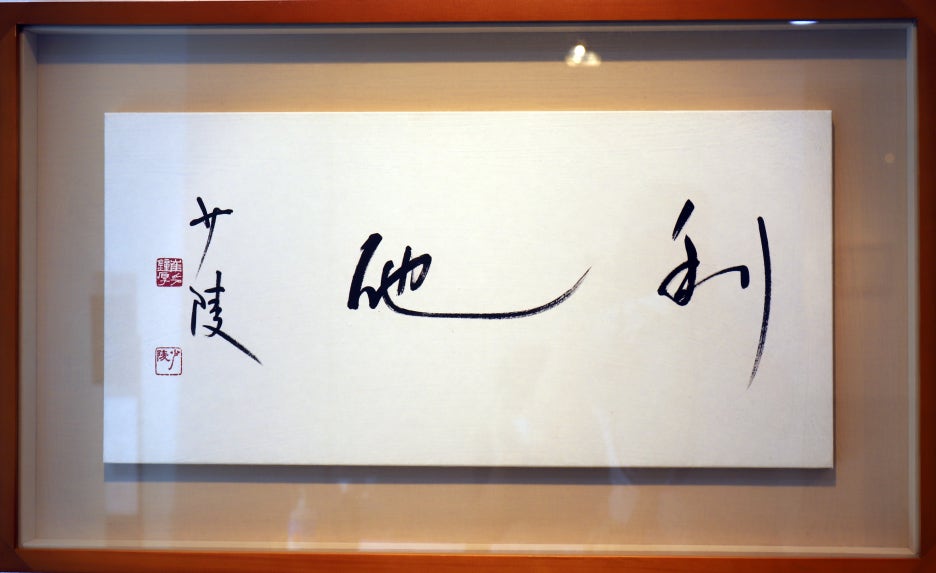 利他
少陵
少陵